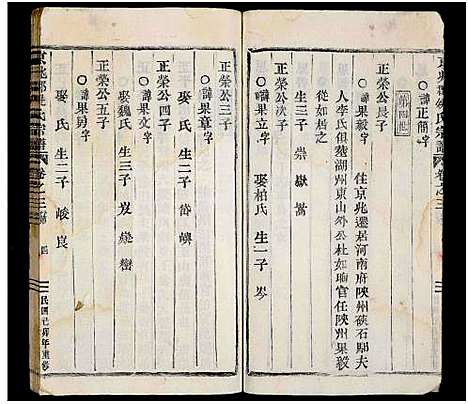 諱正簡字
第四世
正榮公長子
○諱果毅字 住京兆遷居河南府陝州硤石縣夫
人李氏俱塟湖州東山外公杜如晦官任陝州果毅
從如居之
生三子 崇嶽嵩
正榮公次子
○諱果立字 娶柏氏 生一子 岑
正榮公三子
○諱果章字
娶 氏 生二子 岱嶼
正榮公四子
○諱果文字
娶魏氏 生三子 岌巒
正榮公五子
○諱果勇字
娶 氏 生二子 峻崀
卷之三
四
民國己卯年重修